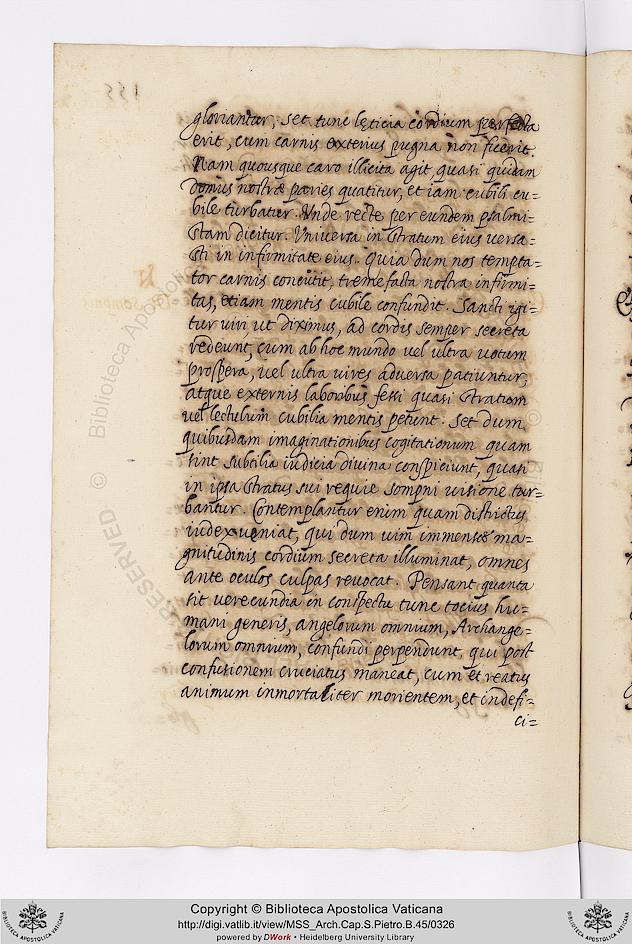 gloriantur; set tunc lęticia cordium perfecta
erit, cum carnis exterius pugna non ficerit.
Nam quousque caro illicita agit, quasi quidam
domus nostræ paries quatitur, et iam cubili cu=
bile turbatur. Vnde recte per eundem psalmi=
stam dicitur. Vniuersa in stratum eius uersa=
sti in infirmitate eius. Quia dum nos tempta=
tor carnis concutit, tremefacta nostra infirmi=
tas, etiam mentis cubile confundit. Sancti igi=
tur uiri ut diximus, ad cordis semper secreta
redeunt, cum ab hoc mundo uel ultra uotum
prospera, uel ultra uires aduersa patiuntur,
atque externis laboribus fessi quasi stratum
uel lectulum cubilia mentis petunt. Set dum
quibusdam imaginationibus cogitationum quam
sint subtilia iudicia diuina conspiciunt, quasi
in ipsa stratus sui requie sompni uisione tur=
bantur. Contemplantur enim quam districtus
iudex ueniat, qui dum uim immensæ ma=
gnitudinis cordium secreta illuminat, omnes
ante oculos culpas reuocat. Pensant quanta
sit uerecundia in conspectu tunc tocius hu=
mani generis, angelorum omnium, Archange=
lorum omnium, confundi perpendunt, qui post
confusionem cruciatus maneat, cum et reatus
animum inmortaliter morientem, et indefi=
ci=
155
© Biblioteca Apostolica
RESERVED
Copyright © Biblioteca Apostolica Vaticana
http://digi.vatlib.it/view/MSS_Arch.Cap.S.Pietro.B.45/0326
powered by DWork • Heidelberg University Library